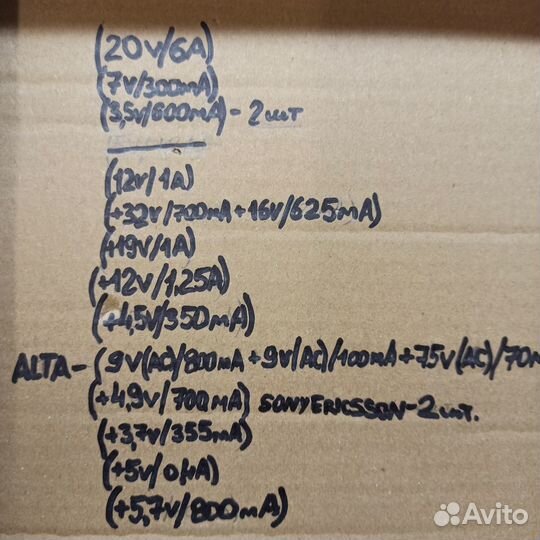 (20V/6A)
(7V/300mA)
(3,5V/600mA) - 2 шт
(12V/1A)
(+32V/700mA+16V/625mA)
(+19V/1A)
(+12V/1,25A)
(+4,5V/350mA)
ALTA - (9V(AC)/800mA + 9V(AC)/100mA + 7.5V(AC)/70m
(+4,9V/700mA) SONYERICSSON - 2 шт.
(+3,7V/355mA)
(+5V/
(+5,7V/800mA)
Avito